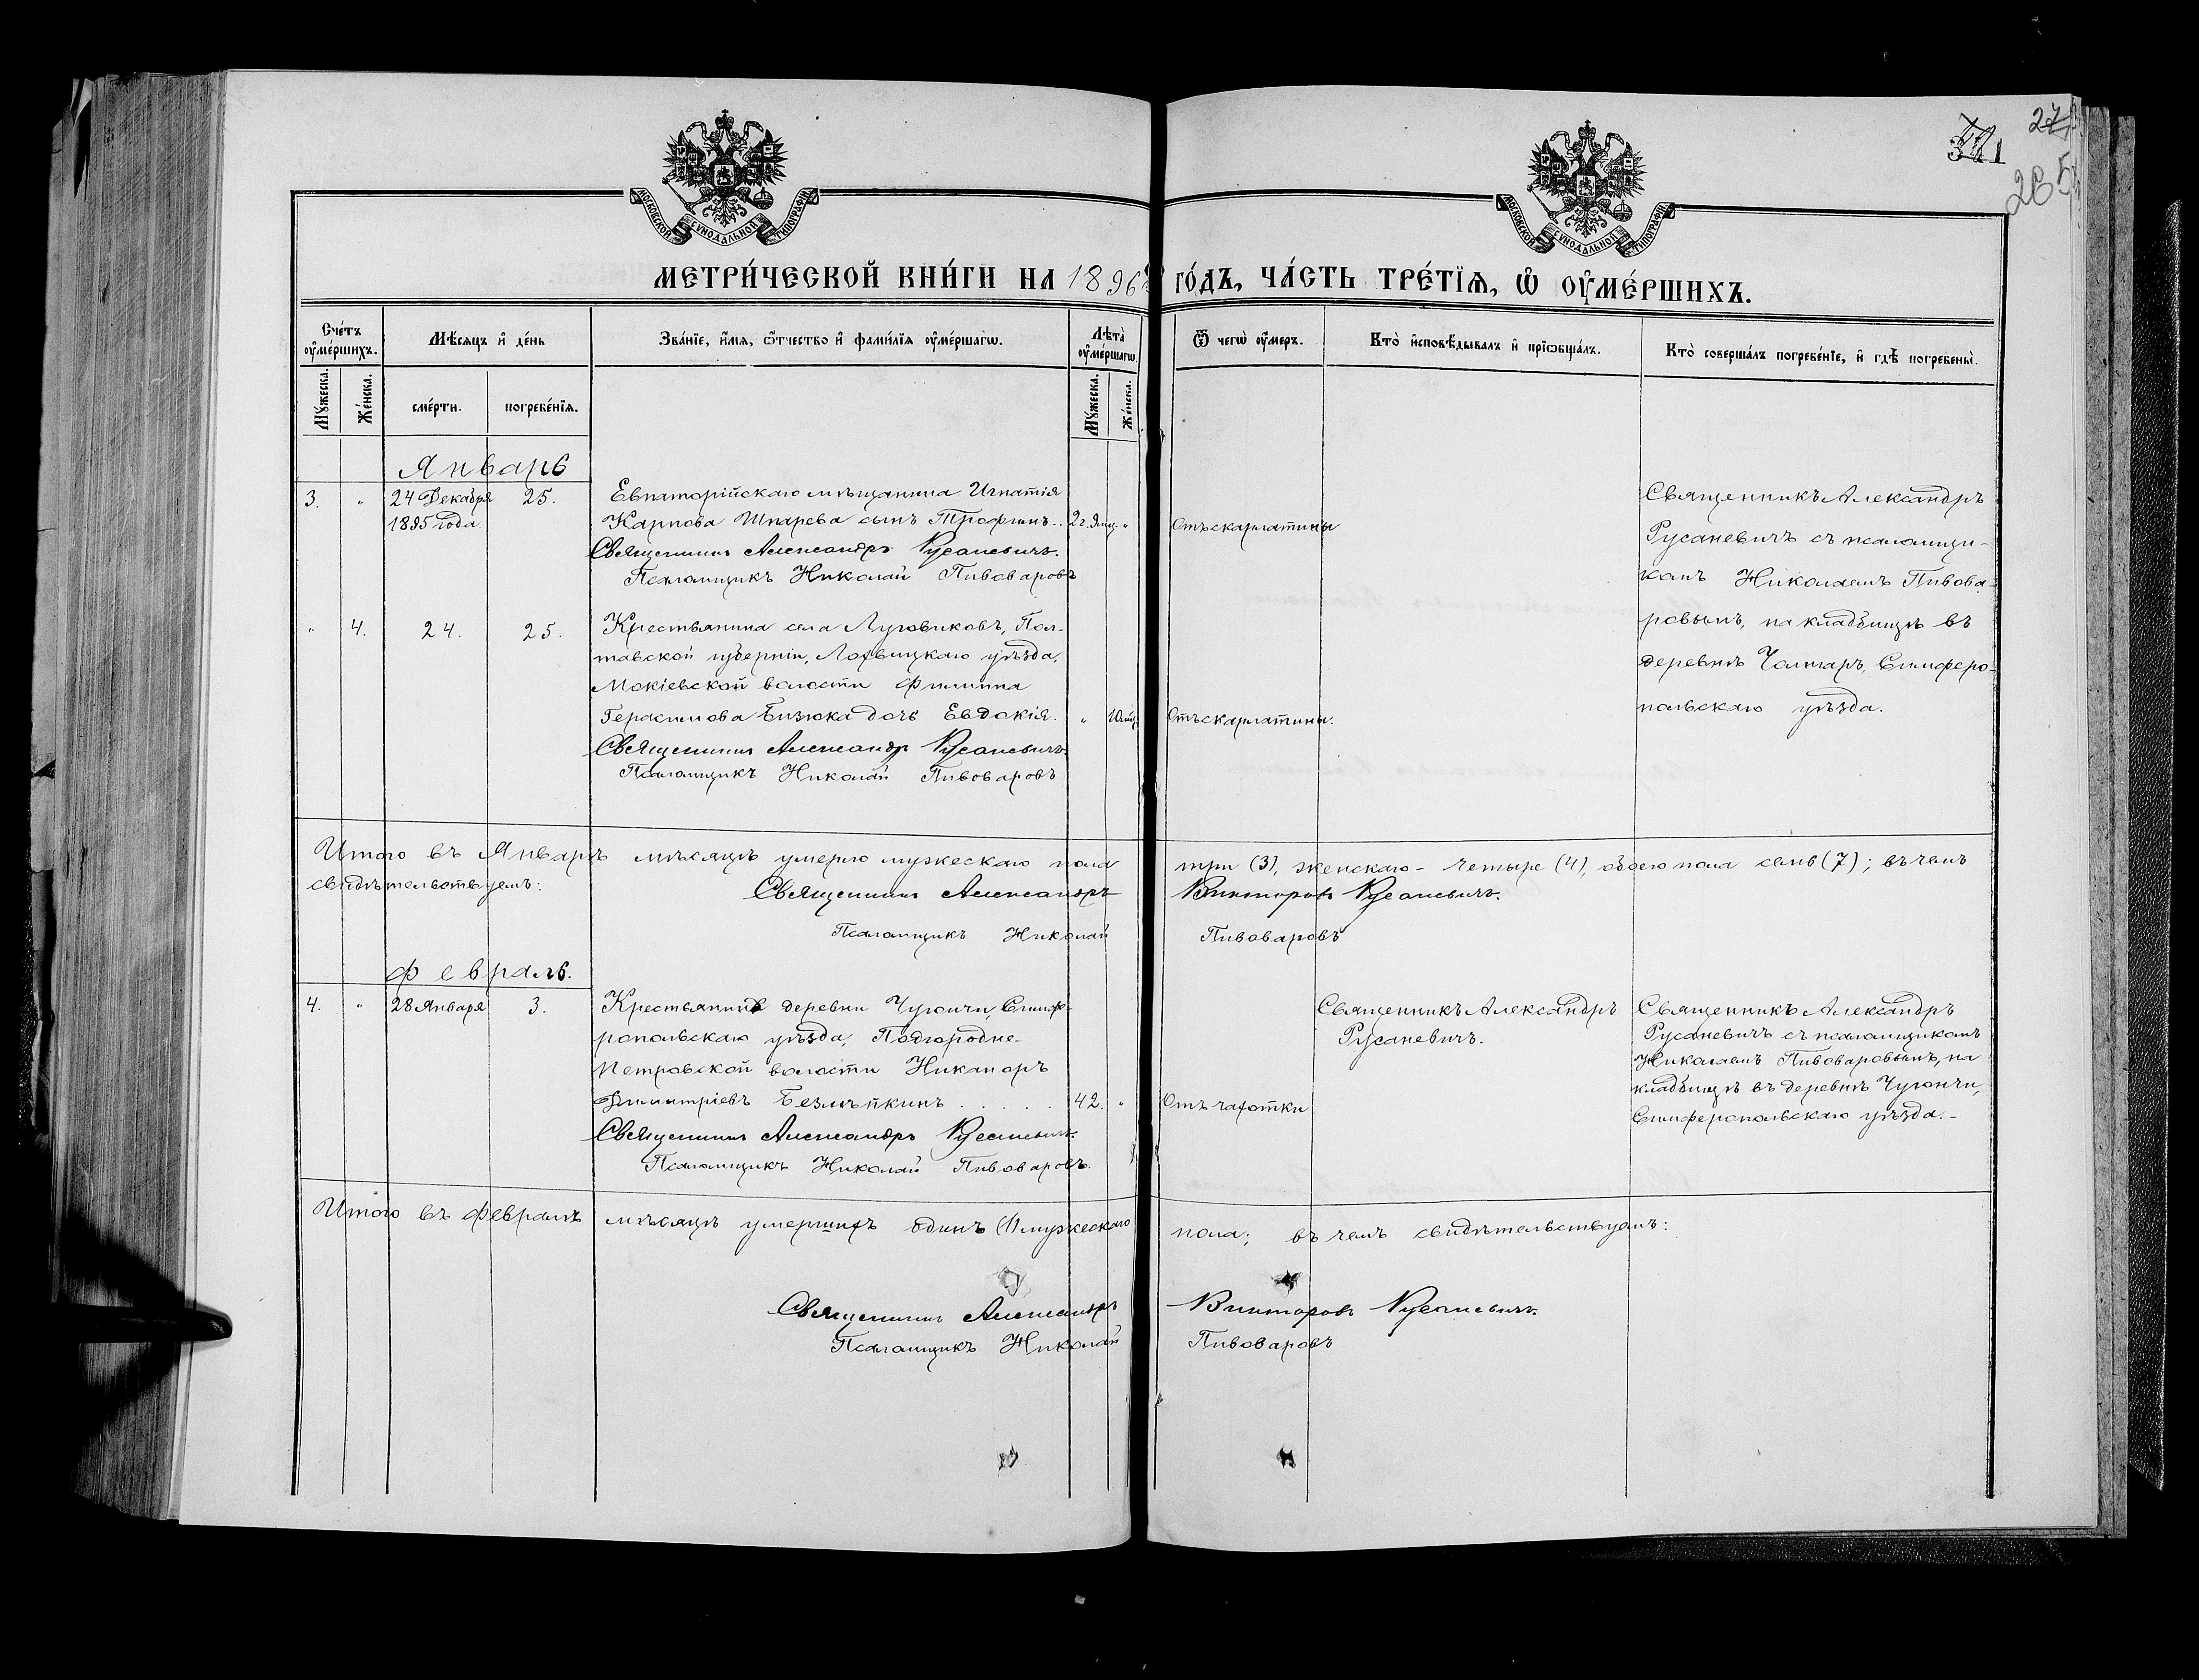 МОСКОВСКОЙ СѴНОДАЛЬНОЙ ТИПОГРАФІИ
МОСКОВСКОЙ СѴНОДАЛЬНОЙ ТИПОГРАФІИ
МЕТРИ́ЧЕСКОЙ КНИ́ГИ НА 1896 ГО́ДЪ, ЧА́СТЬ ТРЕ́ТЇѦ, Ѡ҆ ОУ҆МЕ́РШИХЪ.
Сче́тъ оу҆ме́ршихъ.
Мѣ́сѧцъ и҆ де́нь
Зва́нїе, и҆́мѧ, ѻ҆́тчество и҆ фами́лїѧ оу҆ме́ршагѡ.
Лѣта̀ оу҆ме́ршагѡ.
Ѿ чегѡ̀ оу҆́меръ.
Кто̀ и҆сповѣ́дывалъ и҆ прїѡбща́лъ.
Кто̀ соверша́лъ погребе́нїе, и҆ гдѣ̀ погребены̀.
Мꙋ́жеска.
Же́нска.
сме́рти.
погребе́нїѧ.
Мꙋ́жеска.
Же́нска.
Январь
3. " 24 Декабря 25. Евпаторійскаго мѣщанина Игнатія
1895 года. Карпова Шпарева сынъ Трофимъ.. "
Отъ скарлатины
Священникъ Александръ Русаневичъ.
Псаломщикъ Николай Пивоваровъ
Священникъ Александръ
Русаневичъ съ псаломщи-
комъ Николаемъ Пивова-
ровымъ, на кладбищѣ въ
деревнѣ Чолмаръ, Симферо-
польскаго уѣзда.
" 4. 24. 25. Крестьянина села Луговиковъ, Пол-
тавской губерніи, Лохвицкаго уѣзда,
Мокіевской волости Филиппа
Герасимова Бизюка дочь Евдокія. " 10 мц.
Отъ скарлатины.
Священникъ Александръ Русаневичъ.
Псаломщикъ Николай Пивоваровъ
Итого въ Январѣ мѣсяцѣ умерло мужескаго пола три (3), женскаго - четыре (4), обоего пола семь (7); въ чемъ
свидѣтельствуемъ:
Священникъ Александръ Викторовъ Русаневичъ.
Псаломщикъ Николай Пивоваровъ
Февраль.
4. " 28 Января 3. Крестьянинъ деревни Чугончи, Симфе-
ропольскаго уѣзда, Подгородне-
Петровской волости Никаноръ
Димитріевъ Безмѣпкинъ . . . . . 42. "
Отъ чахотки
Священникъ Александръ Русаневичъ.
Псаломщикъ Николай Пивоваровъ.
Священникъ Александръ
Русаневичъ.
Священникъ Александръ
Русаневичъ съ псаломщикомъ
Николаемъ Пивоваровымъ, на
кладбищѣ въ деревнѣ Чугончи,
Симферопольскаго уѣзда.-
Итого въ Февралѣ мѣсяцѣ умершихъ одинъ (1) мужескаго пола; въ чемъ свидѣтельствуемъ:
Священникъ Александръ Викторовъ Русаневичъ.
Псаломщикъ Николай Пивоваровъ